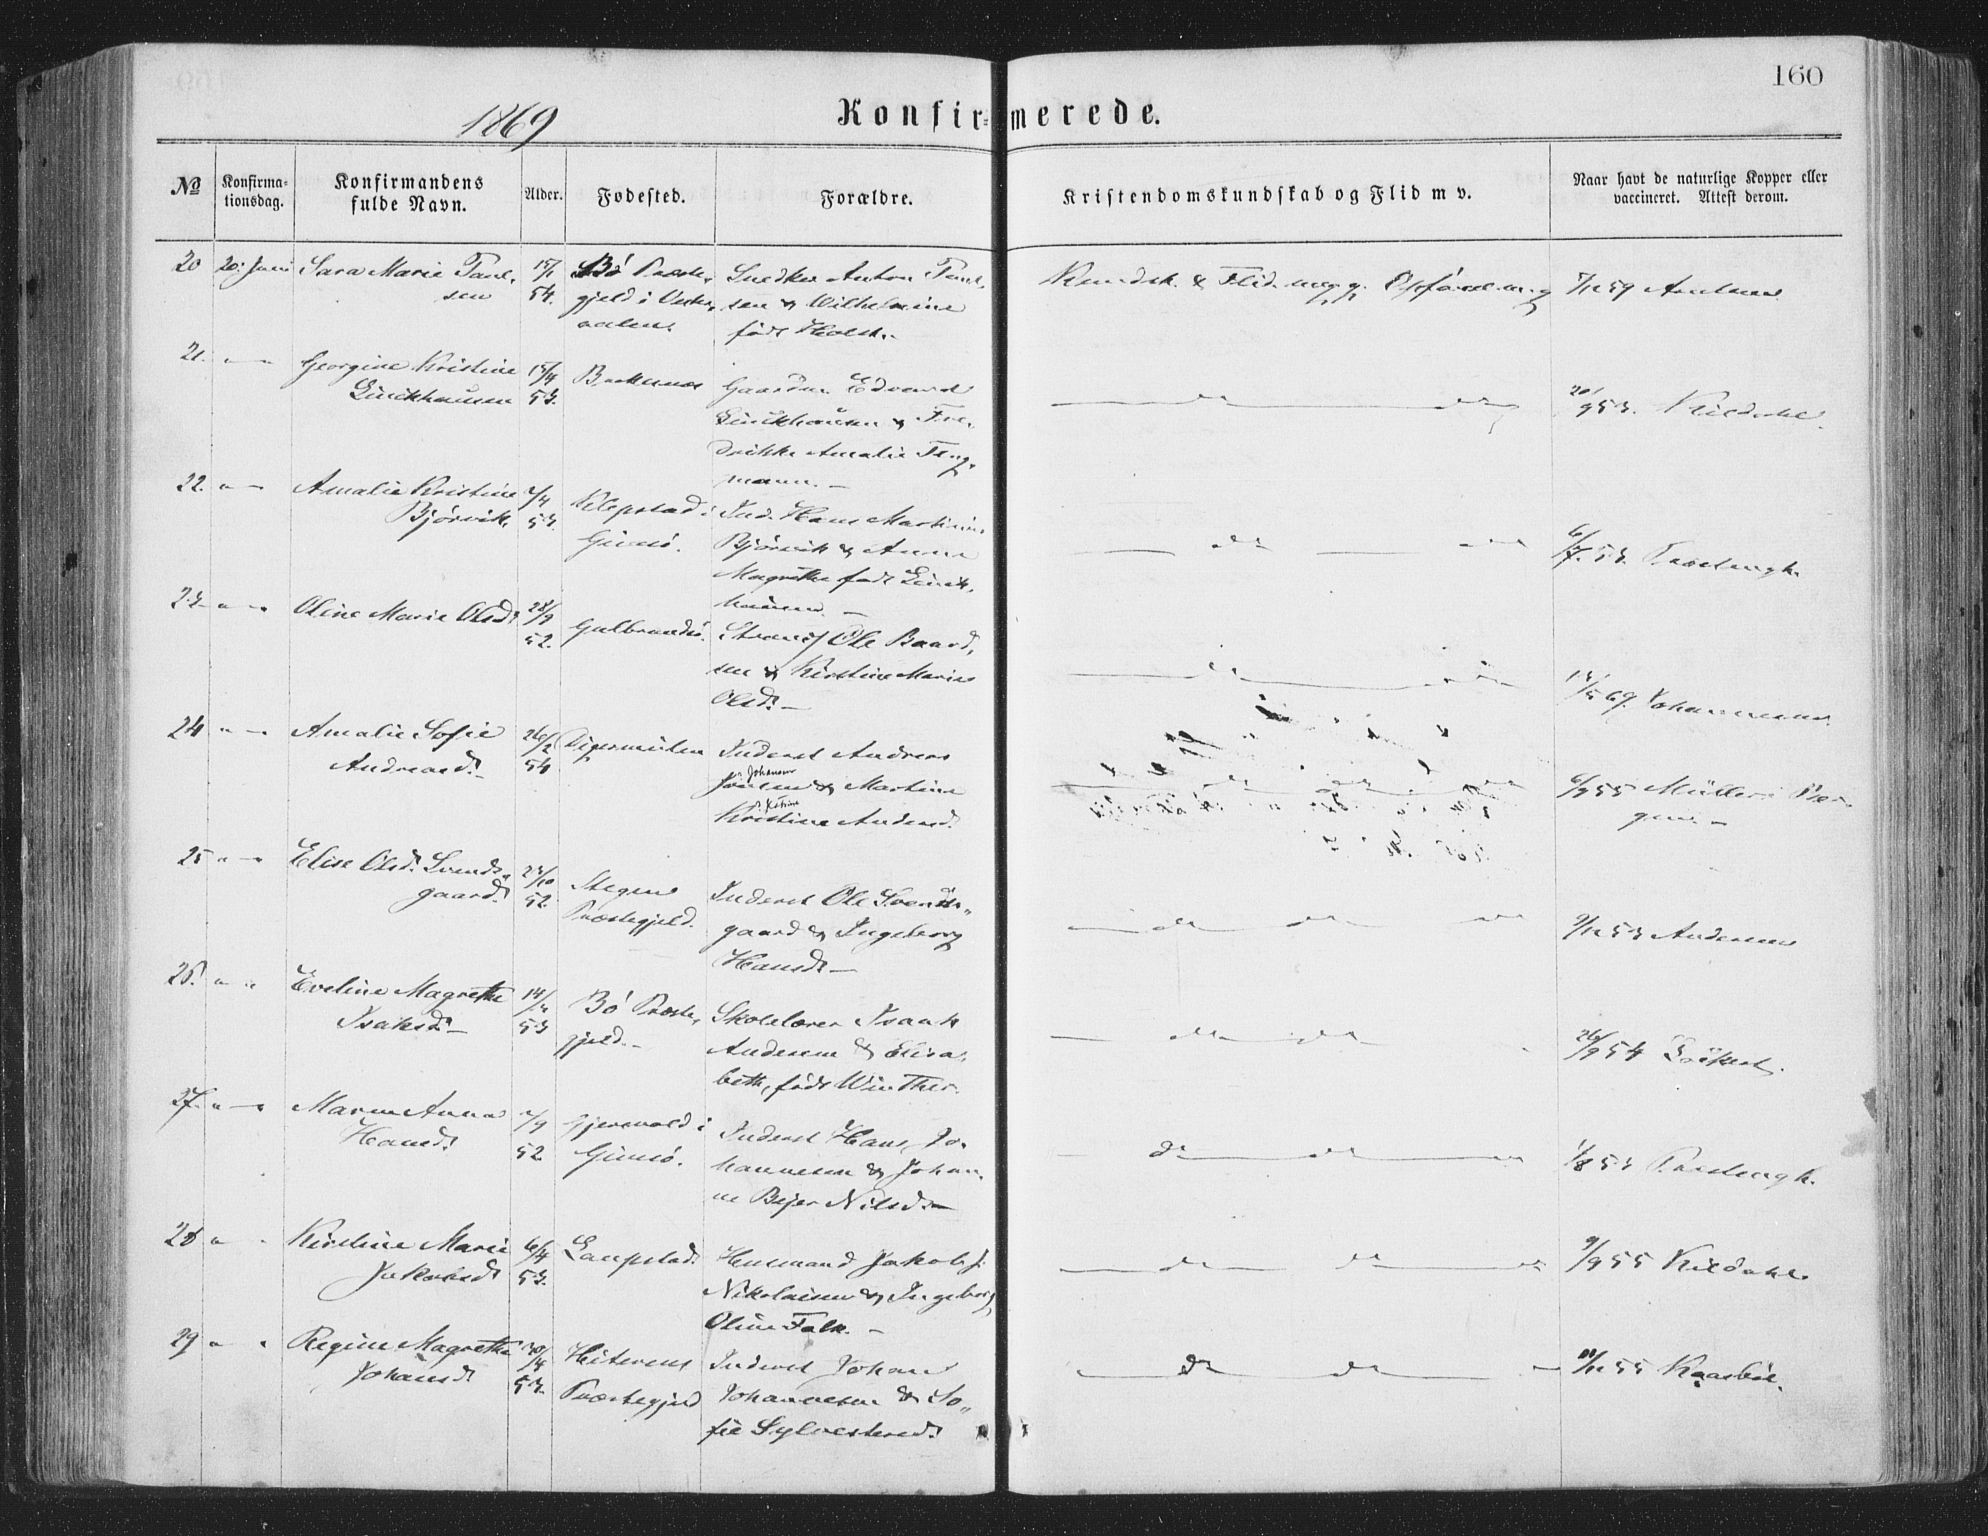 160
1869
Konfir-merede.
№
Konfirma-
tionsdag.
Konfirmandens
fulde Navn.
Alder.
Fødested.
Forældre.
Kristendomskundskab og Flid m v.
Naar havt de naturlige Kopper eller
vaccineret. Attest derom.
20 20. Juni Sara Marie Paul-
sen
15/1
54.
Bø Præste-
gjeld i Vester-
aalen.
Snedker Anton Paul-
sen & Wilhelmine
født Holst.
Kundsk. & Flid meg. g. Opførsel m. g
21. " — " Georgine Kristine
Quickhausen
15/4
53.
Gaardm. Edvard
Quickhausen & Fre-
drikke Amalie Teng-
mann. —
do do
20/9 53. Kildahl.
22. " — Amalie Kristine
Bjørvik.
53.
Klepstad i
Gimsø.
Ind. Hans Martinus
Bjørvik & Anne
Magrethe født Quick-
hausen. —
do do
6/7. 53.
23 " — " Oline Marie Olsd.
28/9
52.
Gulbrandsø.
Ole Baard-
sen & Kirstine Marie
Olsd. —
do do
69. Johannesen
24 " — " Amalie Sofie
Andreasd. —
26/2
54
Digermulen
Inderst Andreas
Johansen
Jonsen & Martine
Katrine
Kristine Andersd.
do do
6/9 55 Müller i Ber-
gen —
25 " — " Elise Olsd. Svends-
gaard.
23/10
52.
Stegens
Præstegjeld.
Inderst Ole Svends-
gaard & Ingeborg
Hansd. —
do do
9/12 53 Andersen
26. " " Eveline Magrethe
Isaksd. —
14/
53
Bø Præste-
gjeld. —
Skolelærer Isaak
Andersen & Elisa-
beth, født Winther.
do do
26/9 54
27. " — " Maren Anna
Hansd.
/9
52
Gjersvold i
Gimsø.
Inderst Hans Jo-
hannesen & Johan-
ne Bejer Nilsd. —
do do
1/8 53
28 " " Kirstine Marie
Jakobsd.
6/4
53.
Laupstad.
Husmand Jakob J.
Nikolaisen & Ingeborg
Oline Falk. —
do do
9/9 55 Kildahl.
29 " " Regine Magrethe
Johansd.
30/4
53.
Hiterens
Præstegjeld
Inderst Johan
Johannesen & So-
fie Sylvestersd.
do do
55 Kaarbøe.